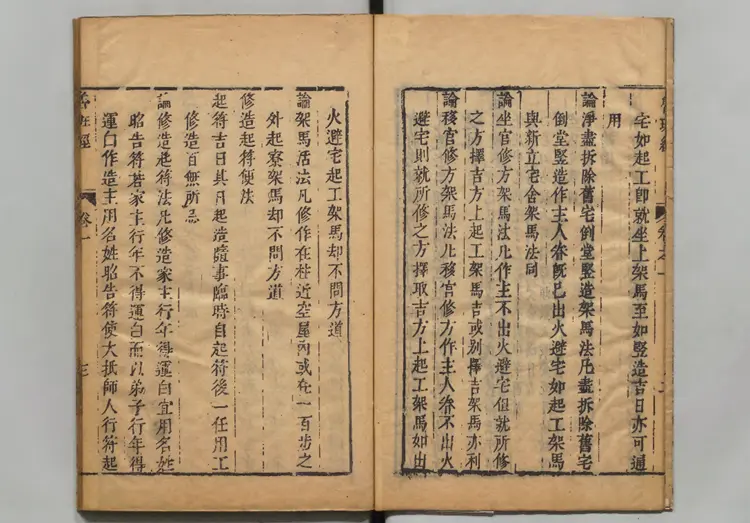 宅如起工即就坐上架馬至如竪造吉日亦可通
用
論淨盡拆除舊宅倒堂竪造架馬法凡盡拆除舊宅
倒堂竪造作主人眷既已出火避宅如起工架馬
與新立宅舍架馬法同
論坐宮修方架馬法凡作主不出火避宅但就所修
之方擇吉方上起工架馬吉或別擇吉架馬亦利
論移宮修方架馬法凡移宮修方作主人眷不出火
避宅則就所修之方擇取吉方上起工架馬如出
火避宅起工架馬却不問方道
論架馬活法凡修作在柱近空屋內或在一百步之
外起寮架馬却不問方道
修造起符便法
起符吉日其凡起造隨事臨時自起符後一任用工
修造百無所忌
論修造起符法凡修造家主行年得運白宜用名姓
昭告符若家主行年不得運白而以弟子行年得
運白作造主用名姓昭告符使大抵師人行符起
魯班經
卷一
三